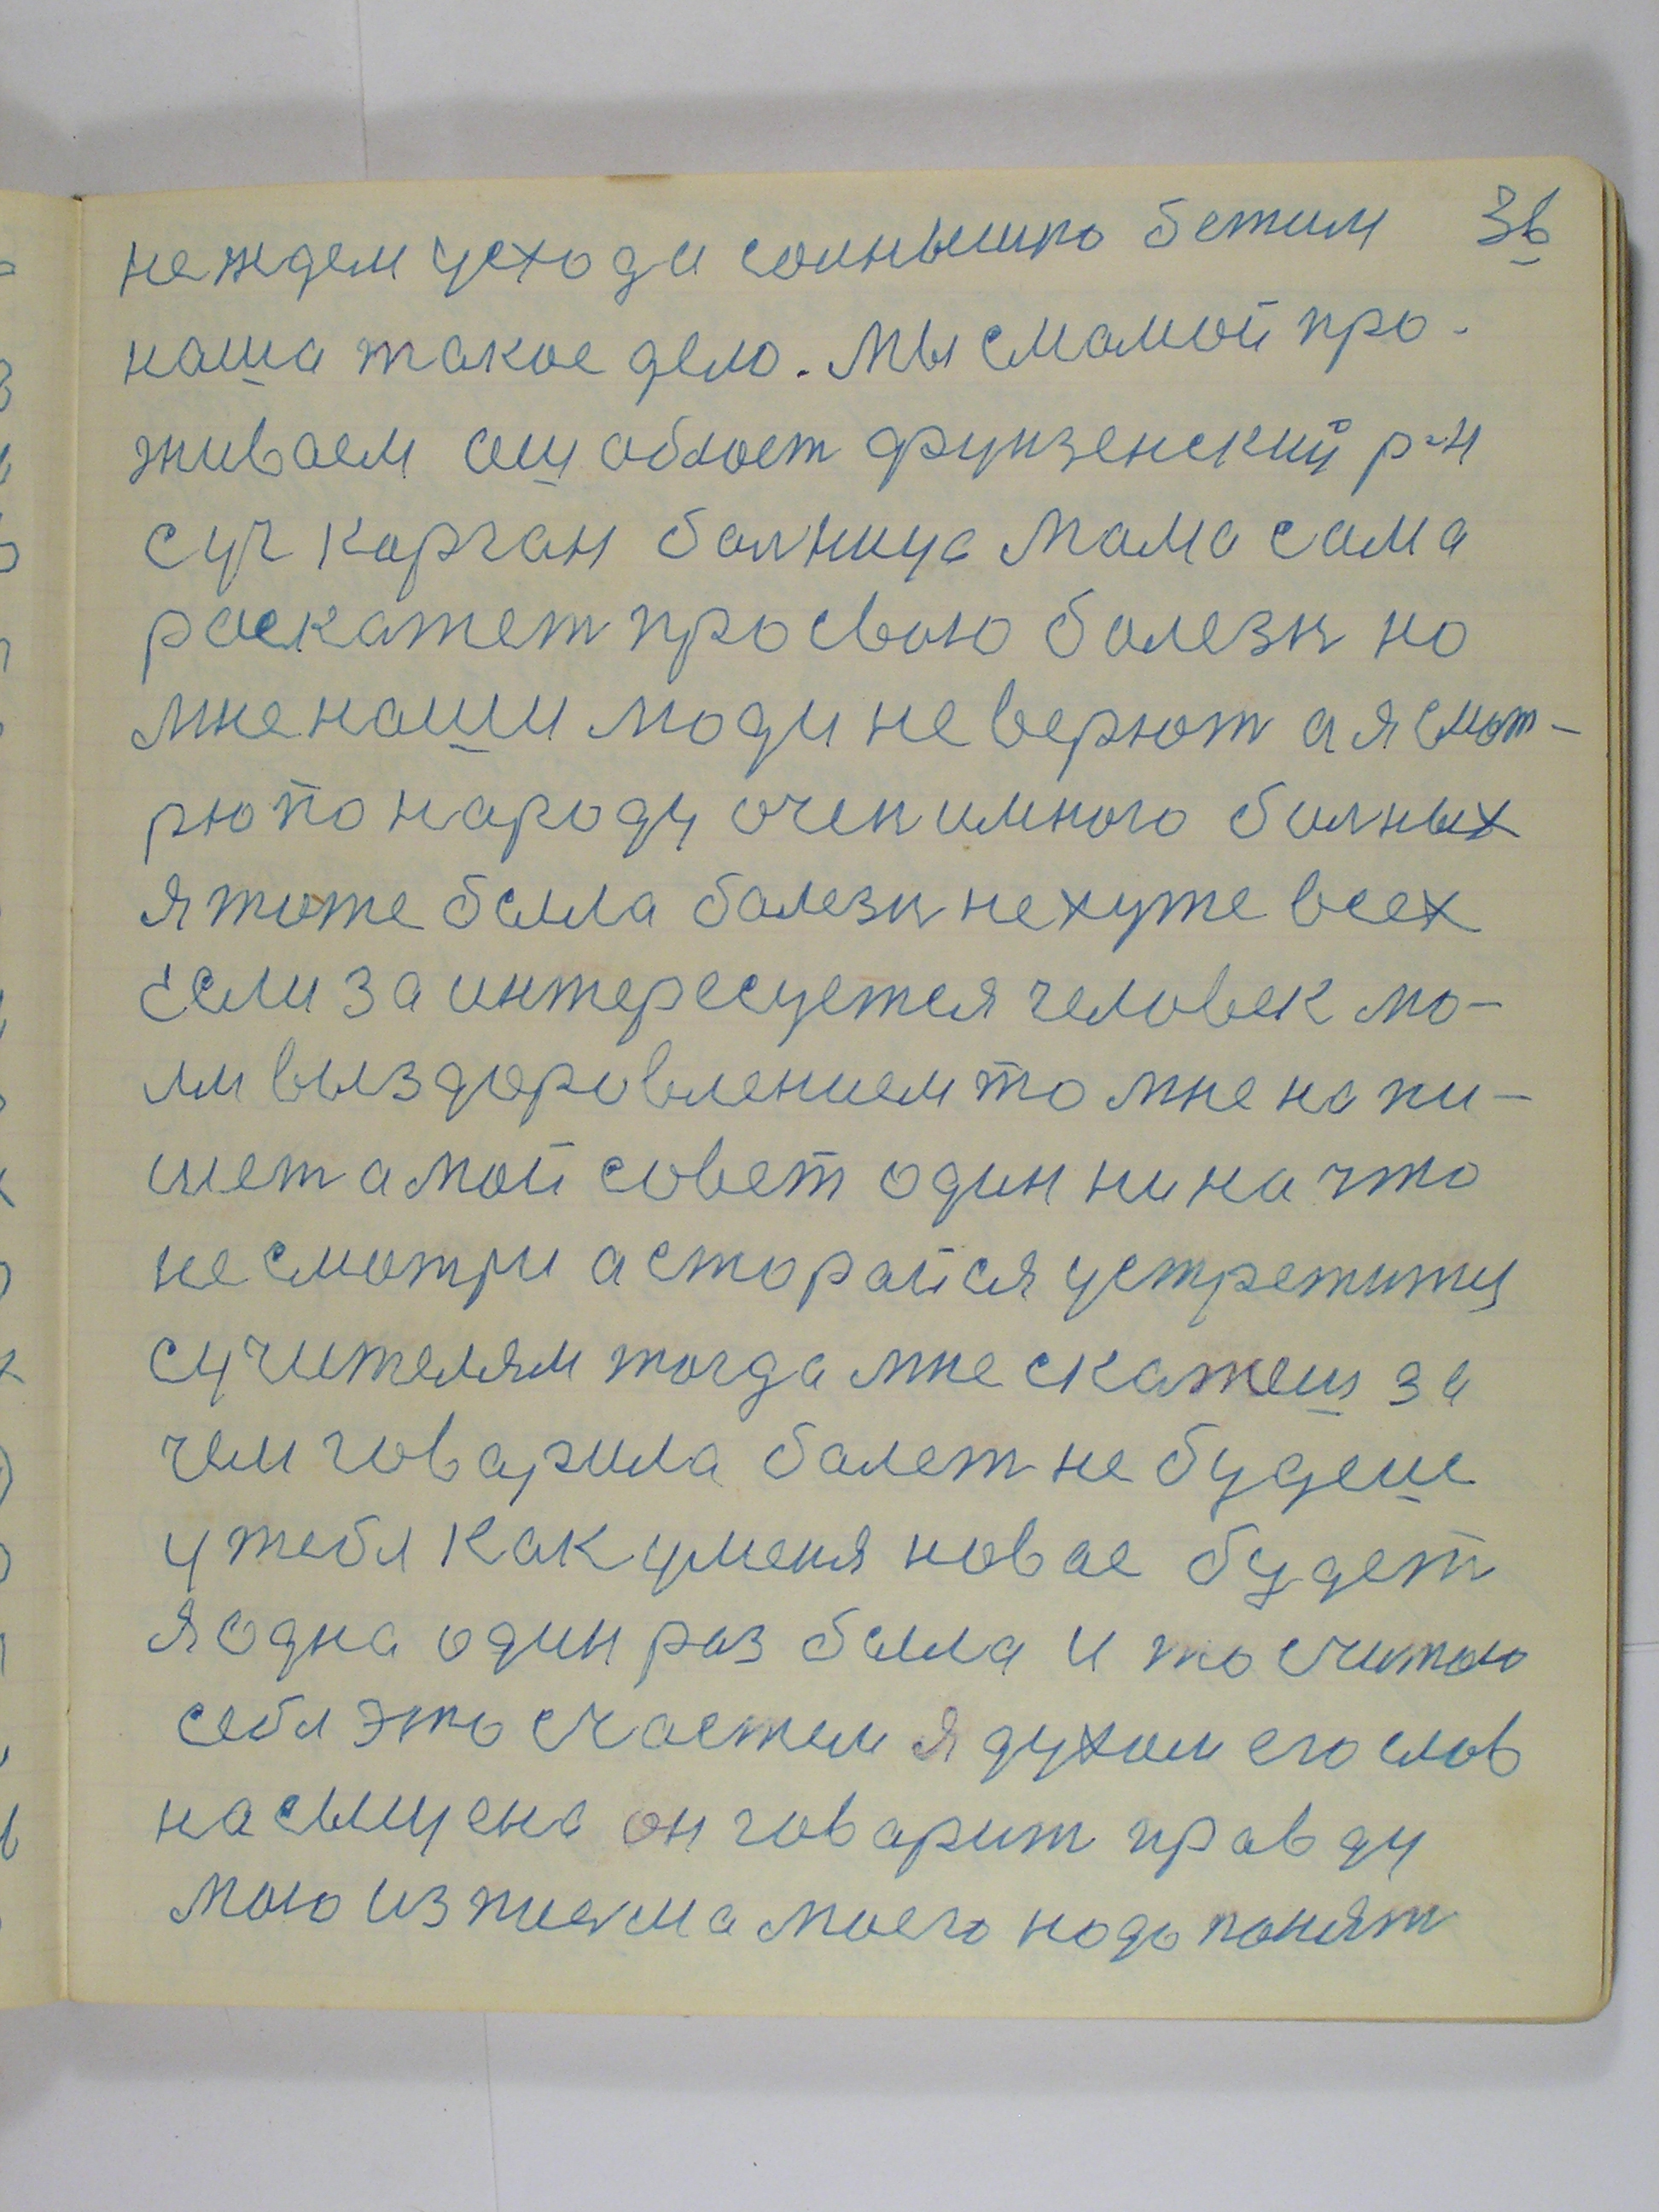 не ждем усхода солнышко бежим 36
наша такое дело. Мы смамой про-
живаем ош област фрунзенский р-н
суг корган болница Мама сама
раскажет про свою болезн но
мне наши люди не верют а я смот-
рю по народу очен имного болных
я тоже была болезн не хуже всех
Если за интересуется человек мо-
им выздоровлением то мне напи-
шет а мой совет один ни на что
не смотри а сторайся устретитц
сучителям тогда мне скажеш за
чем говарила болет не будеш
у тебя как уменя новае будет
Я одна один раз была и то считаю
себя это счастем я духом его слов
насыщена он говарит правду
мою из писма моего надо понят